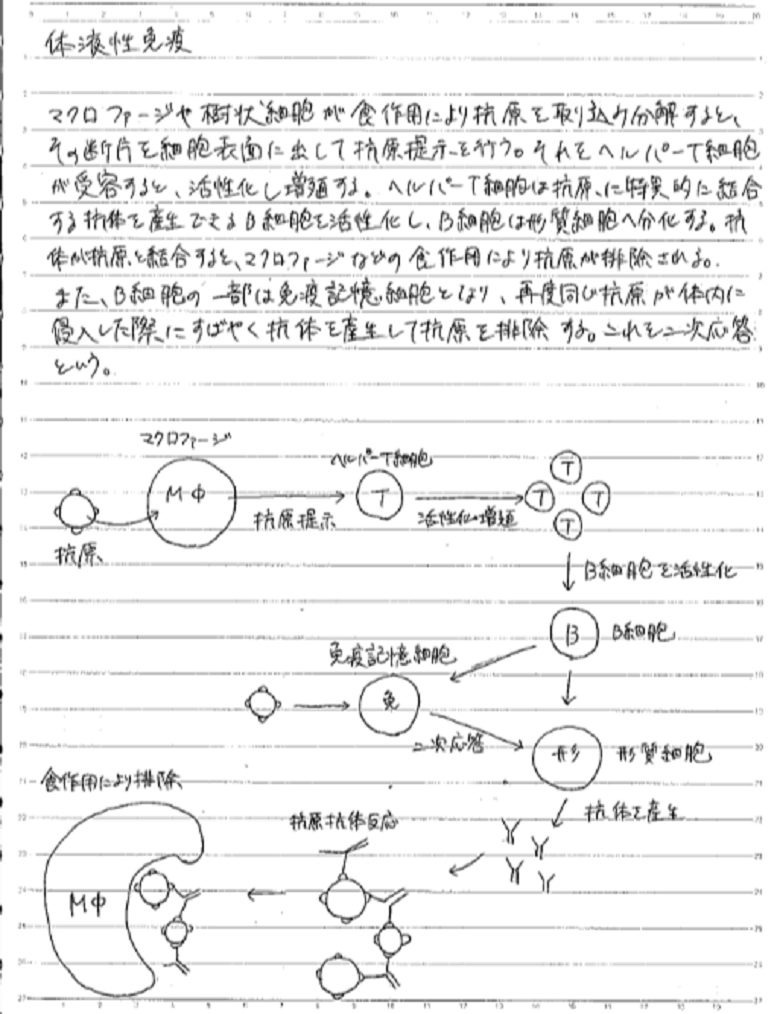 体液性免疫
マクロファージや樹状細胞が食作用により抗原を取り込み分解すると、
その断片を細胞表面に出して抗原提示を行う。それをヘルパーT細胞
が受容すると、活性化し増殖する。ヘルパーT細胞は抗原に特異的に結合
する抗体を産生できるB細胞を活性化し、B細胞は形質細胞へ分化する。抗
体が抗原と結合すると、マクロファージなどの食作用により抗原が排除される。
また、B細胞の一部は免疫記憶細胞となり、再度同じ抗原が体内に
侵入した際にすばやく抗体を産生して抗原を排除する。これを二次応答
という。
マクロファージ
MΦ
抗原
抗原提示
ヘルパーT細胞
T
活性化・増殖
T
T
T
T
B細胞を活性化
B
B細胞
免疫記憶細胞
免
二次応答
形
形質細胞
抗体を産生
抗原抗体反応
食作用により排除
MΦ